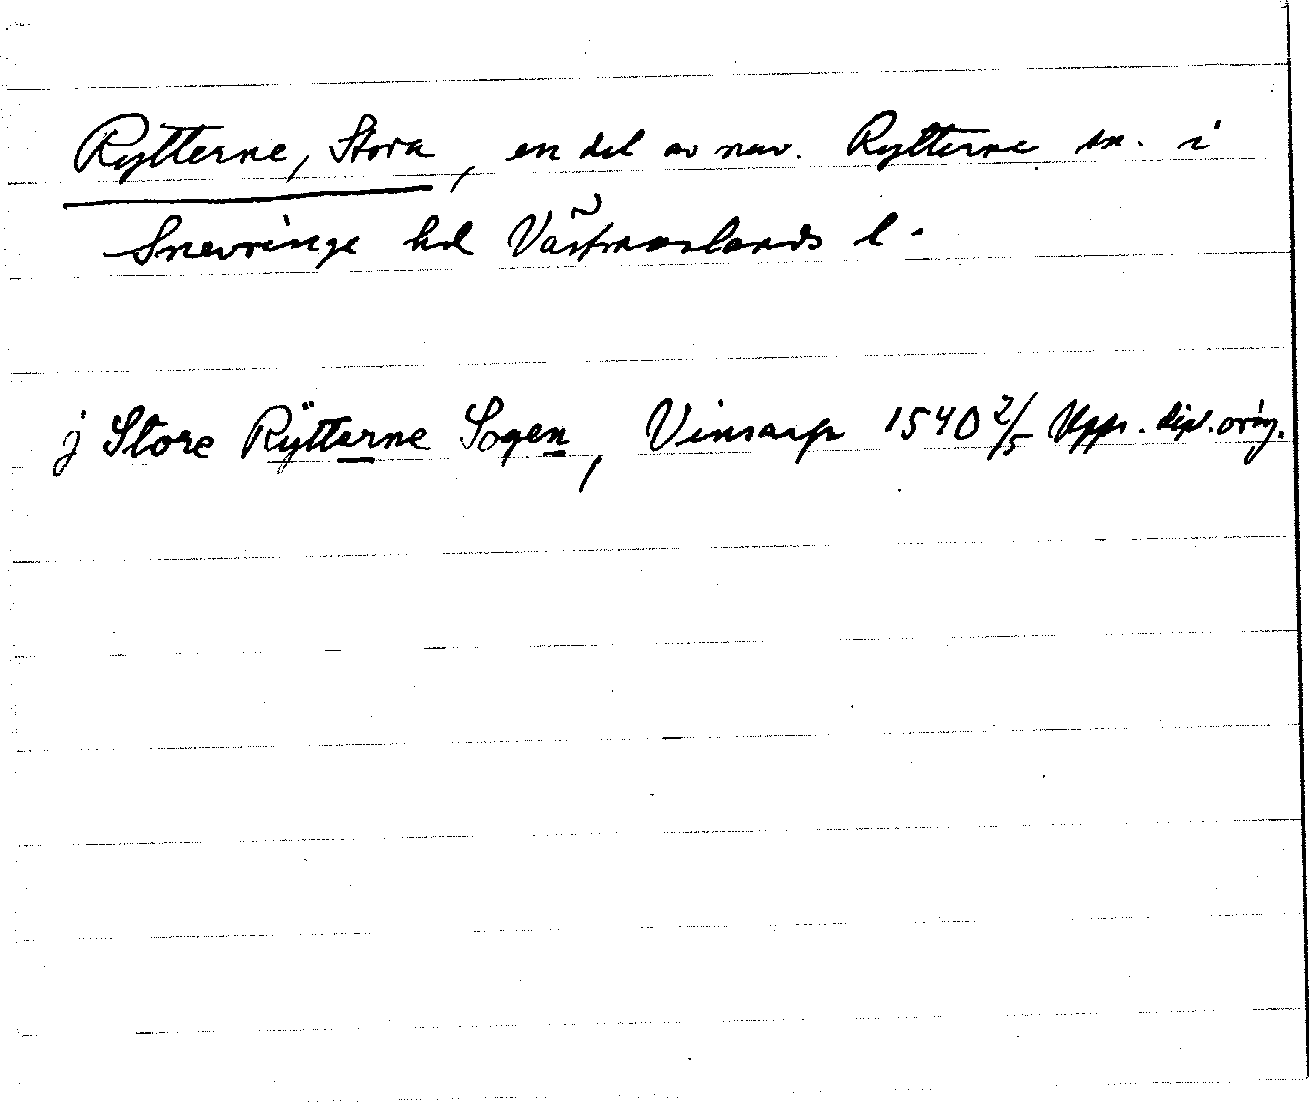 Rytterne, Stora, en del av nuv. Rytterne sn. i
Snevringe hd Västmanlands l.
j Store Rÿtterne Sogen, Vinsarp 1540 2/5 Upps. dipl. orig.